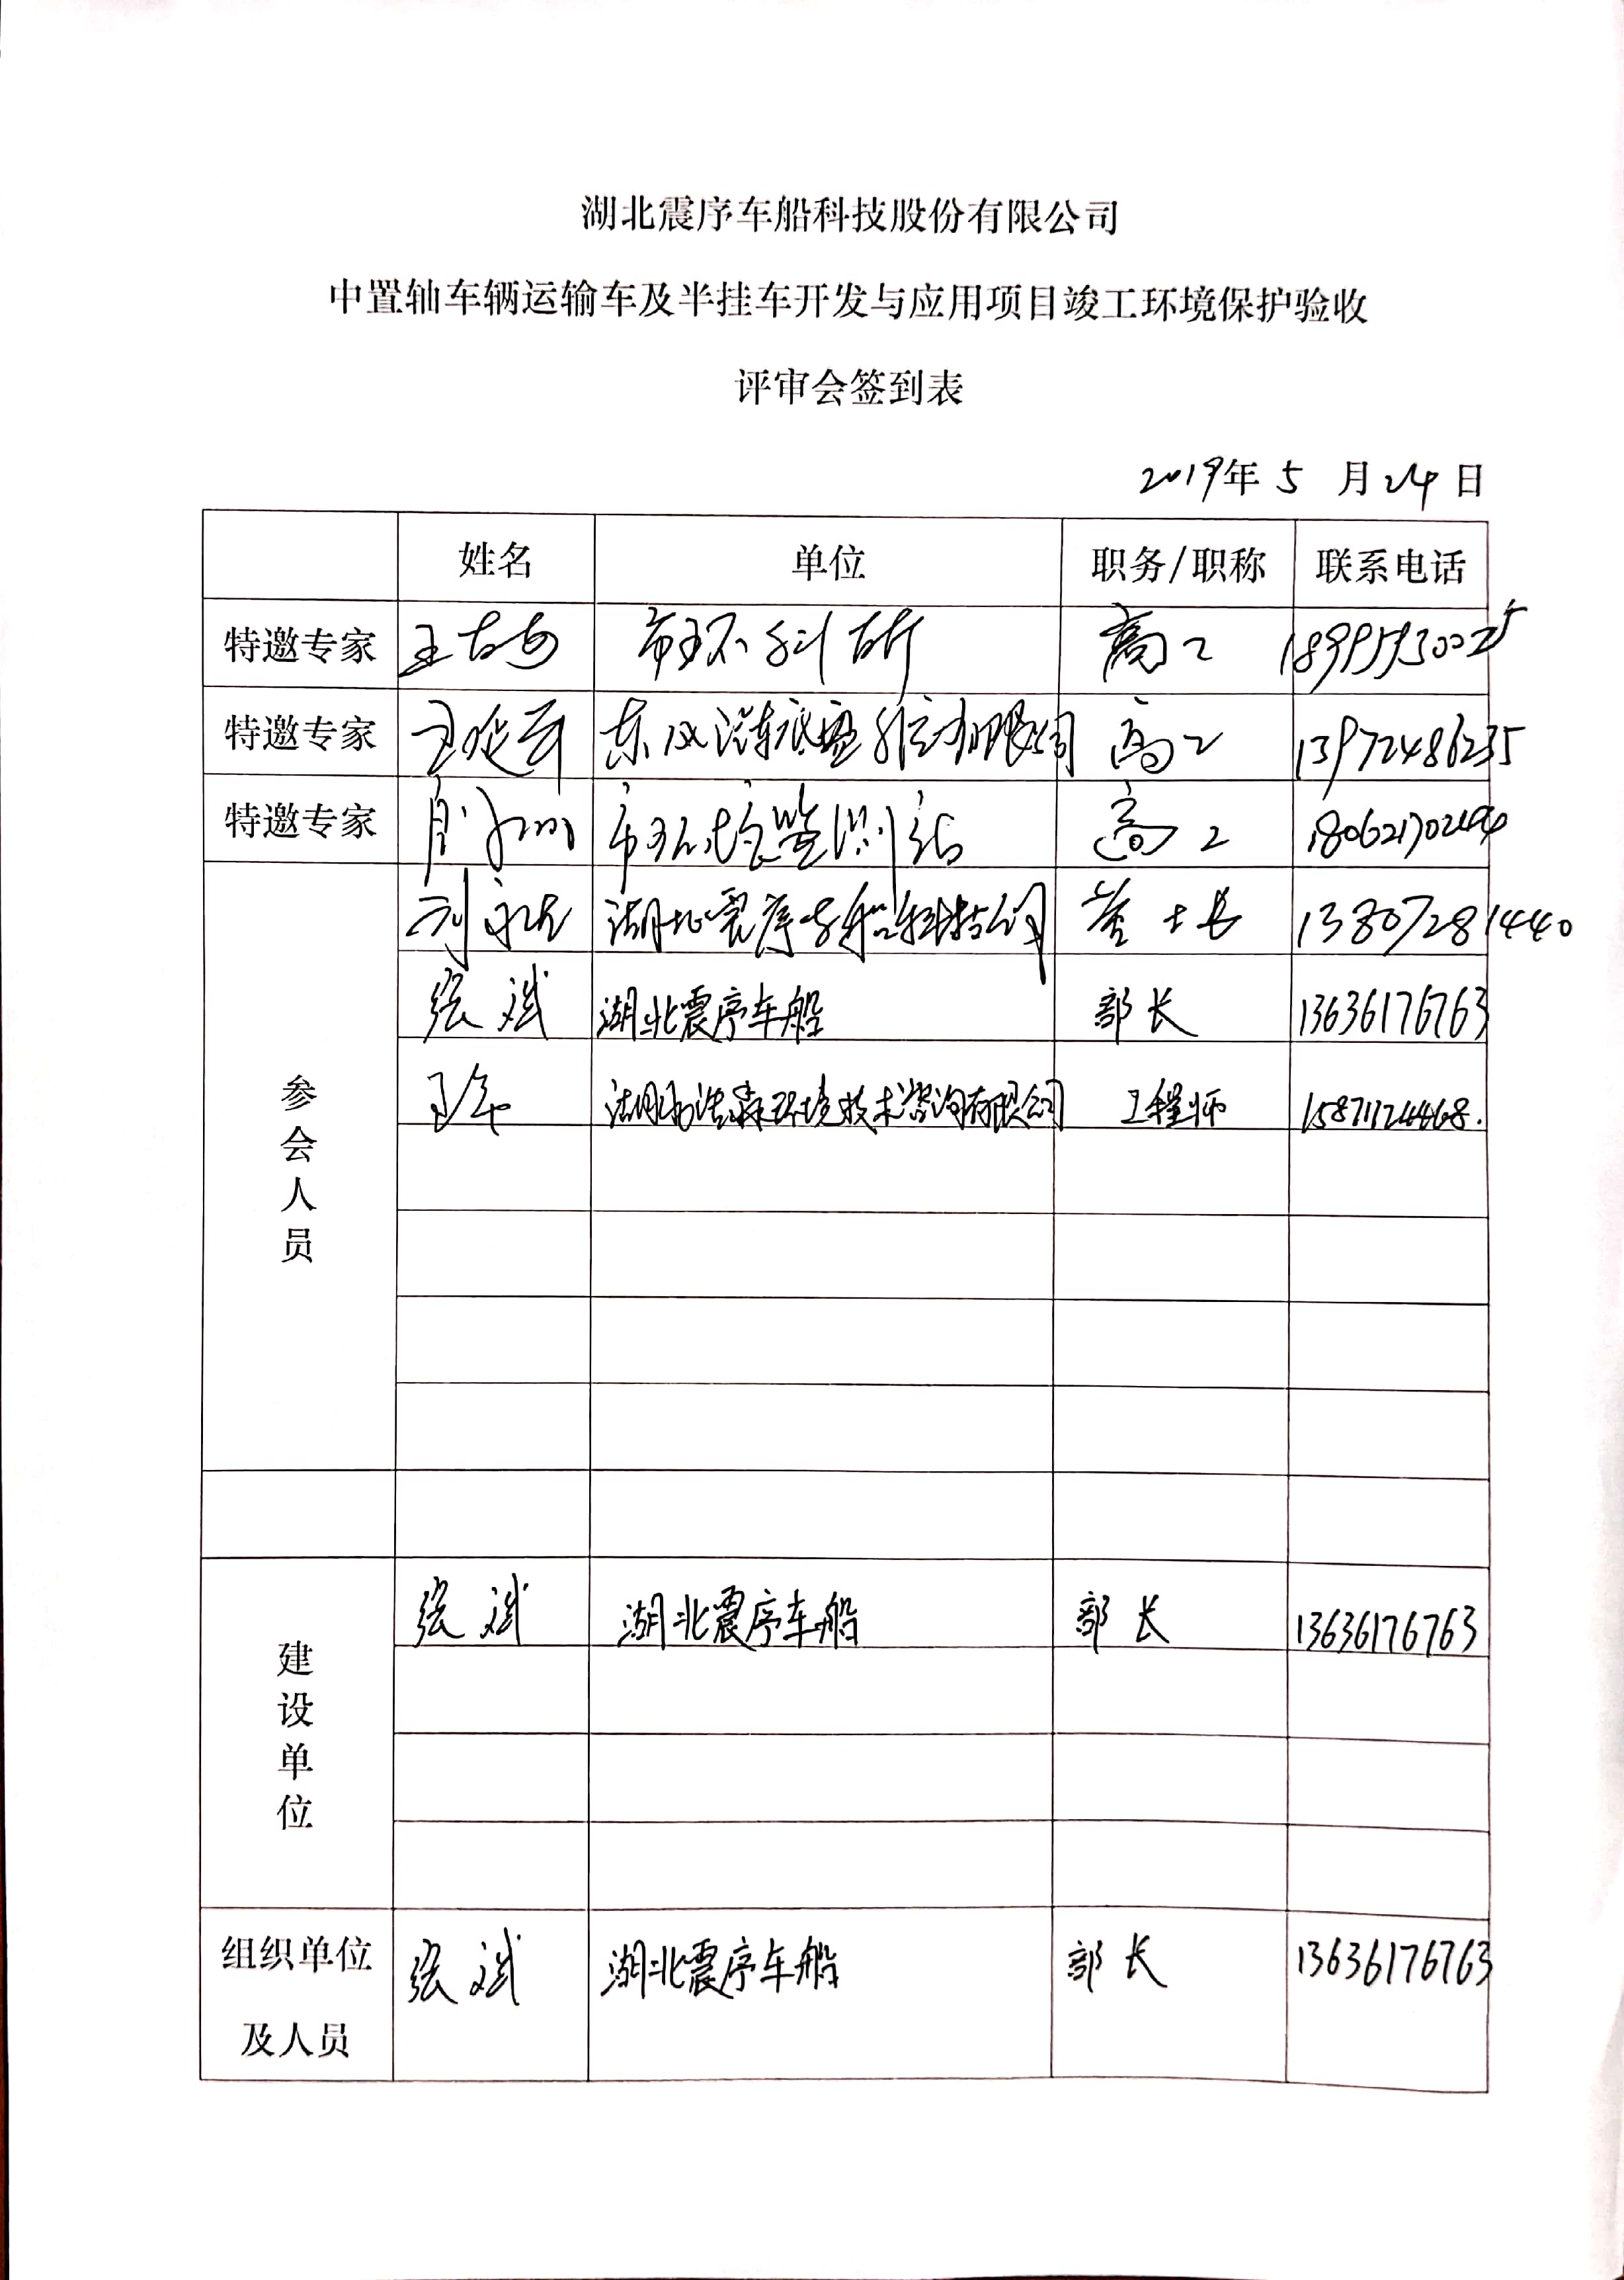 湖北震序车船科技股份有限公司
中置轴车辆运输车及半挂车开发与应用项目竣工环境保护验收
评审会签到表
2019年 5 月 24 日
姓名 单位 职务/职称 联系电话
特邀专家 市环科所 高工
特邀专家 东风汽车底盘 有限公司 高工 13972486235
特邀专家 市环境监测站 高工
刘 湖北震序车船科技公司 董事长 13807281440
张斌 湖北震序车船 部长 13636176763
环境技术咨询有限公司 工程师 15871124468.
参会人员
张斌 湖北震序车船 部长 13636176763
建设单位
组织单位及人员 张斌 湖北震序车船 部长 13636176763